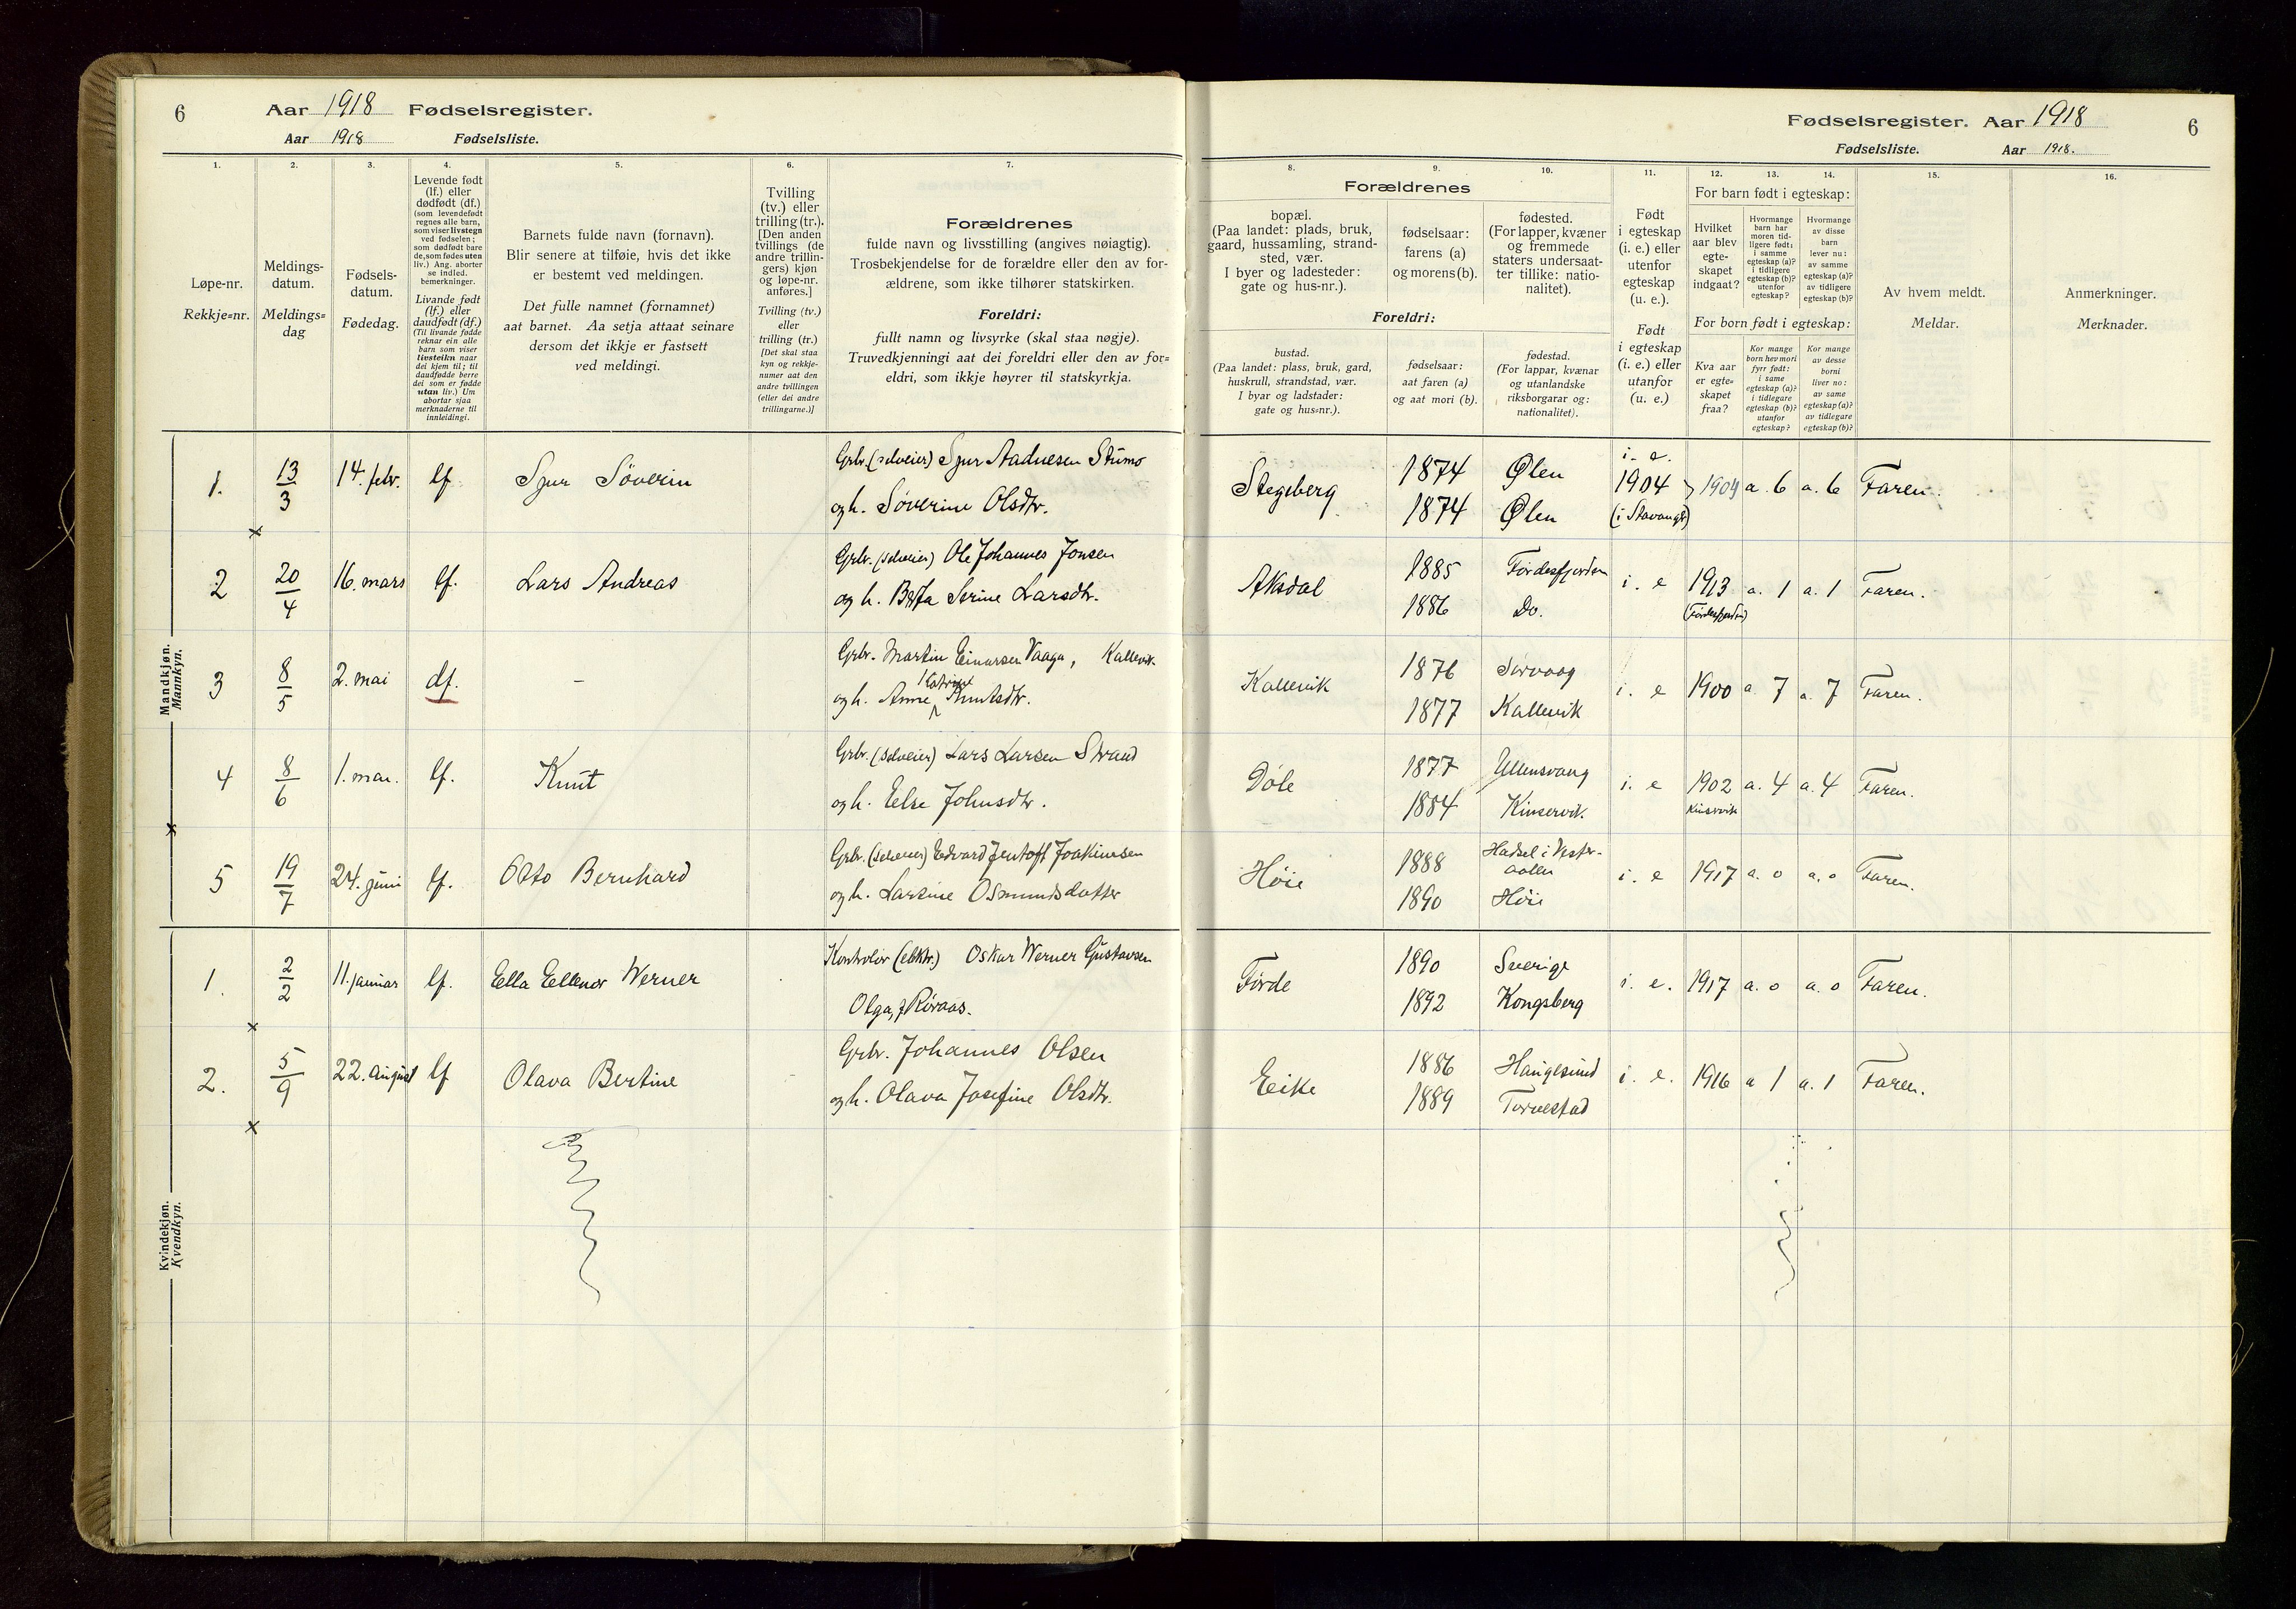 6
Aar 1918 Fødselsregister.
Aar 1918 Fødselsliste.
Fødselsregister. Aar 1918
6
Fødselsliste. Aar 1918.
1.
Løpe-nr.
Rekkje=nr.
2.
Meldings-
datum.
Meldings=
dag
3.
Fødsels-
datum.
Fødedag.
4.
Levende født
(lf.) eller
dødfødt (df.)
(som levendefødt
regnes alle barn,
som viser livstegn
ved fødselen;
som dødfødt bare
de, som fødes uten
liv.) Ang. aborter
se indled.
bemerkninger.
Livande født
(lf.) eller
daudfødt (df.)
(Til livande fødde
reknar ein alle
barn som viser
livsteikn naar
dei kjem til; til
daudfødde berre
dei som er fødde
utan liv.) Um
abortar sjaa
merknaderne til
innleidingi.
5.
Barnets fulde navn (fornavn).
Blir senere at tilføie, hvis det ikke
er bestemt ved meldingen.
Det fulle namnet (fornamnet)
aat barnet. Aa setja attaat seinare
dersom det ikkje er fastsett
ved meldingi.
6.
Tvilling
(tv.) eller
trilling (tr.).
[Den anden
tvillings (de
andre trillin-
gers) kjøn
og løpe-nr.
anføres.]
Tvilling (tv.)
eller
trilling (tr.)
[Det skal staa
kyn og rekkje-
numer aat den
andre tvillingen
(eller dei andre
trillingarne.)]
7.
Forældrenes
fulde navn og livsstilling (angives nøiagtig).
Trosbekjendelse for de forældre eller den av for-
ældrene, som ikke tilhører statskirken.
Foreldri:
fullt namn og livsyrke (skal staa nøgje).
Truvedkjenningi aat dei foreldri eller den av for=
eldri, som ikkje høyrer til statskyrkja.
Forældrenes
8.
bopæl.
(Paa landet: plads, bruk,
gaard, hussamling, strand-
sted, vær.
I byer og ladesteder:
gate og hus-nr.).
9.
fødselsaar:
farens (a)
og morens (b).
10.
fødested.
(For lapper, kvæner
og fremmede
staters undersaat-
ter tillike: natio-
nalitet).
Foreldri:
bustad.
(Paa landet: plass, bruk, gard,
huskrull, strandstad, vær.
I byar og ladstader:
gate og hus=nr.).
fødselsaar:
aat faren (a)
og aat mori (b).
fødestad.
(For lappar, kvænar
og utanlandske
riksborgarar og:
nationalitet).
11.
Født
i egteskap
(i. e.) eller
utenfor
egteskap
(u. e.).
Født
i egteskap
(i. e.) eller
utanfor
(u. e.)
12. 13. 14.
For barn født i egteskap:
Hvilket
aar blev
egte-
skapet
indgaat?
Hvormange
barn har
moren tid-
ligere født:
i samme
egteskap (a)?
i tidligere
egteskap (b)?
utenfor
egteskap?
Hvormange
av disse
barn
lever nu:
av samme
egteskap (a)?
av tidligere
egteskap (b)?
For born født i egteskap:
Kva aar
er egte=
skapet
fraa?
Kor mange
born hev mori
fyrr født:
i same
egteskap (a)?
i tidlegare
egteskap (b)?
utanfor
egteskap?
Kor mange
av desse
borni
liver no:
av same
egteskap (a)?
av tidlegare
egteskap (b)?
15.
Av hvem meldt.
Meldar.
16.
Anmerkninger.
Merknader.
Mandkjøn.
Mannkyn.
1. 13/3 14. febr. lf. Sjur Søverin
Grbr. (selveier) Sjur Aadnesen Stumo
og h. Søverine Olsdtr.
Stegeberg 1874 Ølen i. e. 1904 1904 a. 6 a. 6 Faren.
1874 Ølen (i Stavanger)
2 20/4 16. mars lf. Lars Andreas
Grbr. (selveier) Ole Johannes Jonsen
og h. Berta Serine Larsdtr.
Aksdal 1885 Førdesfjorden i. e 1913 a. 1 a. 1 Faren.
1886 Do. (Førdesfjorden)
3 8/5 2. mai df. -
Grbr. Martin Einarsen Vaaga, Kallevik
og h. Anne Katrine Knutsdtr.
Kallevik 1876 Sørvaag i. e 1900 a. 7 a. 7 Faren.
1877 Kallevik
4 8/6 1. mai. lf. Knut
Grbr. (selveier) Lars Larsen Strand
og h. Eelse Johnsdtr.
Døle 1877 Ullensvang i. e 1902 a. 4 a. 4 Faren.
1884 Kinservik. Kinsvik
5 19/7 24. juni lf. Otto Bernhard
Grbr. (selveier) Edvard Jentoft Joakimsen
og h. Larsine Osmundsdatter
Høie 1888 Hadsel i Vester-
aalen i. e 1917 a. o a. o Faren.
1890 Høie
Kvindekjøn.
Kvendkyn.
1. 2/2 11. januar lf. Ella Eellenor Werner
Kontrolør (elektr.) Oskar Werner Gustavsen
Olga, f. Røraas.
Førde 1890 Sverige i. e. 1917 a. o a. o Faren.
1892 Kongsberg
2. 5/9 22. august lf Olava Bertine
Grbr. Johannes Olsen
og h. Olava Josefine Olsdtr.
Eike 1886 Haugesund i. e. 1916 a 1 a. 1 Faren.
1889 Torvestad